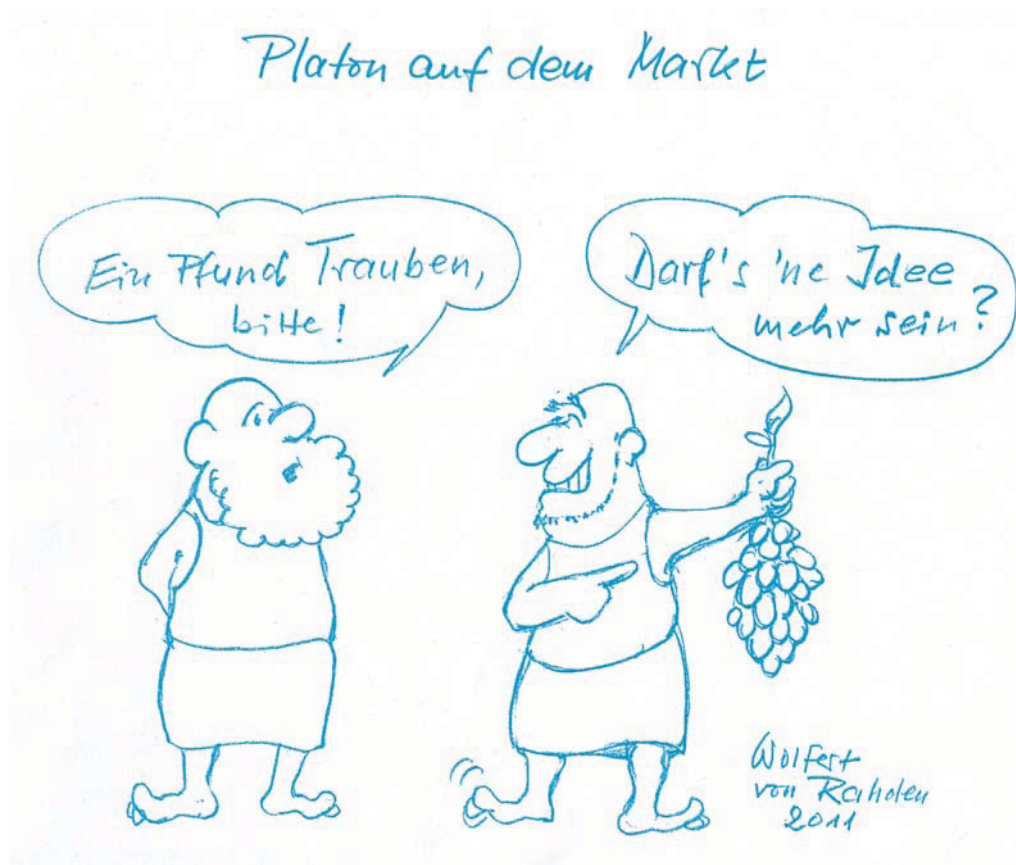 Platon auf dem Markt
Ein Pfund Trauben,
bitte!
Darf's 'ne Idee
mehr sein?
Wolfert
von Rahden
2011